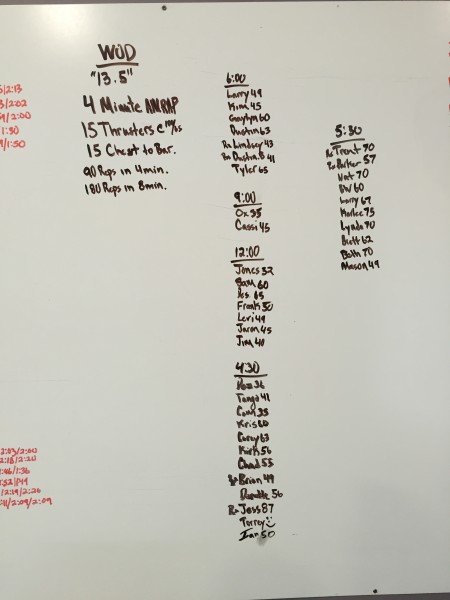 WOD
"13.5"
4 Minute AMRAP
15 Thrusters @ 100/65
15 Chest to Bar.
90 Reps in 4 min.
180 Reps in 8 min.
6:00
Larry 49
Kim 45
Graylyn 60
Dustin 63
Rx Lindsey 43
Rx Dustin.B 41
Tyler 65
9:00
Ox 35
Cassi 45
12:00
Jones 32
Sam 60
65
Frank 50
Levi 49
Jaron 45
Jim 40
4:30
36
Tango 41
35
Kris 60
Corey 63
Kirk 56
Chad 55
Rx Brian 49
56
Rx Jess 87
Torrey
Ian 50
5:30
Rx Trent 70
Rx Parker 57
Nat 70
60
Larry 67
Karlee 75
Lynda 70
Brett 62
Beth 70
Mason 49
/2:13
/2:02
/2:00
1:30
/1:50
2:03/2:00
2:18/2:20
:46/1:36
/2:19/2:26
/2:09/2:09